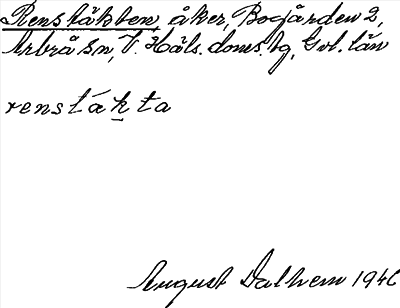 Renstäkten, åker, Bogården 2,
Arbrå sn, V. Häls. doms. bg, Gvl. län
renstákta
August Dalhem 1946